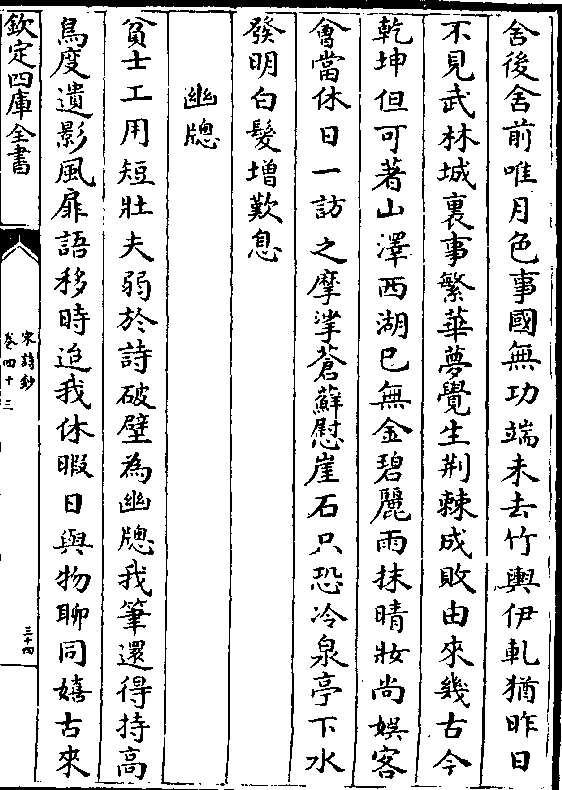 舍後舍前唯月色事國無功端未去竹輿伊軋猶昨日
不見武林城裏事繁華夢覺生荆棘成敗由來幾古今
乾坤但可著山澤西湖已無金碧麗雨抹晴妝尚娛客
會當休日一訪之摩挲蒼蘚慰崖石只恐冷泉亭下水
發明白髮增歎息
幽牕
貧士工用短壯夫弱於詩破壁為幽牕我筆還得持高
鳥度遺影風扉語移時迨我休暇日與物聊同嬉古來
欽定四庫全書
宋詩鈔
卷四十三
三十四